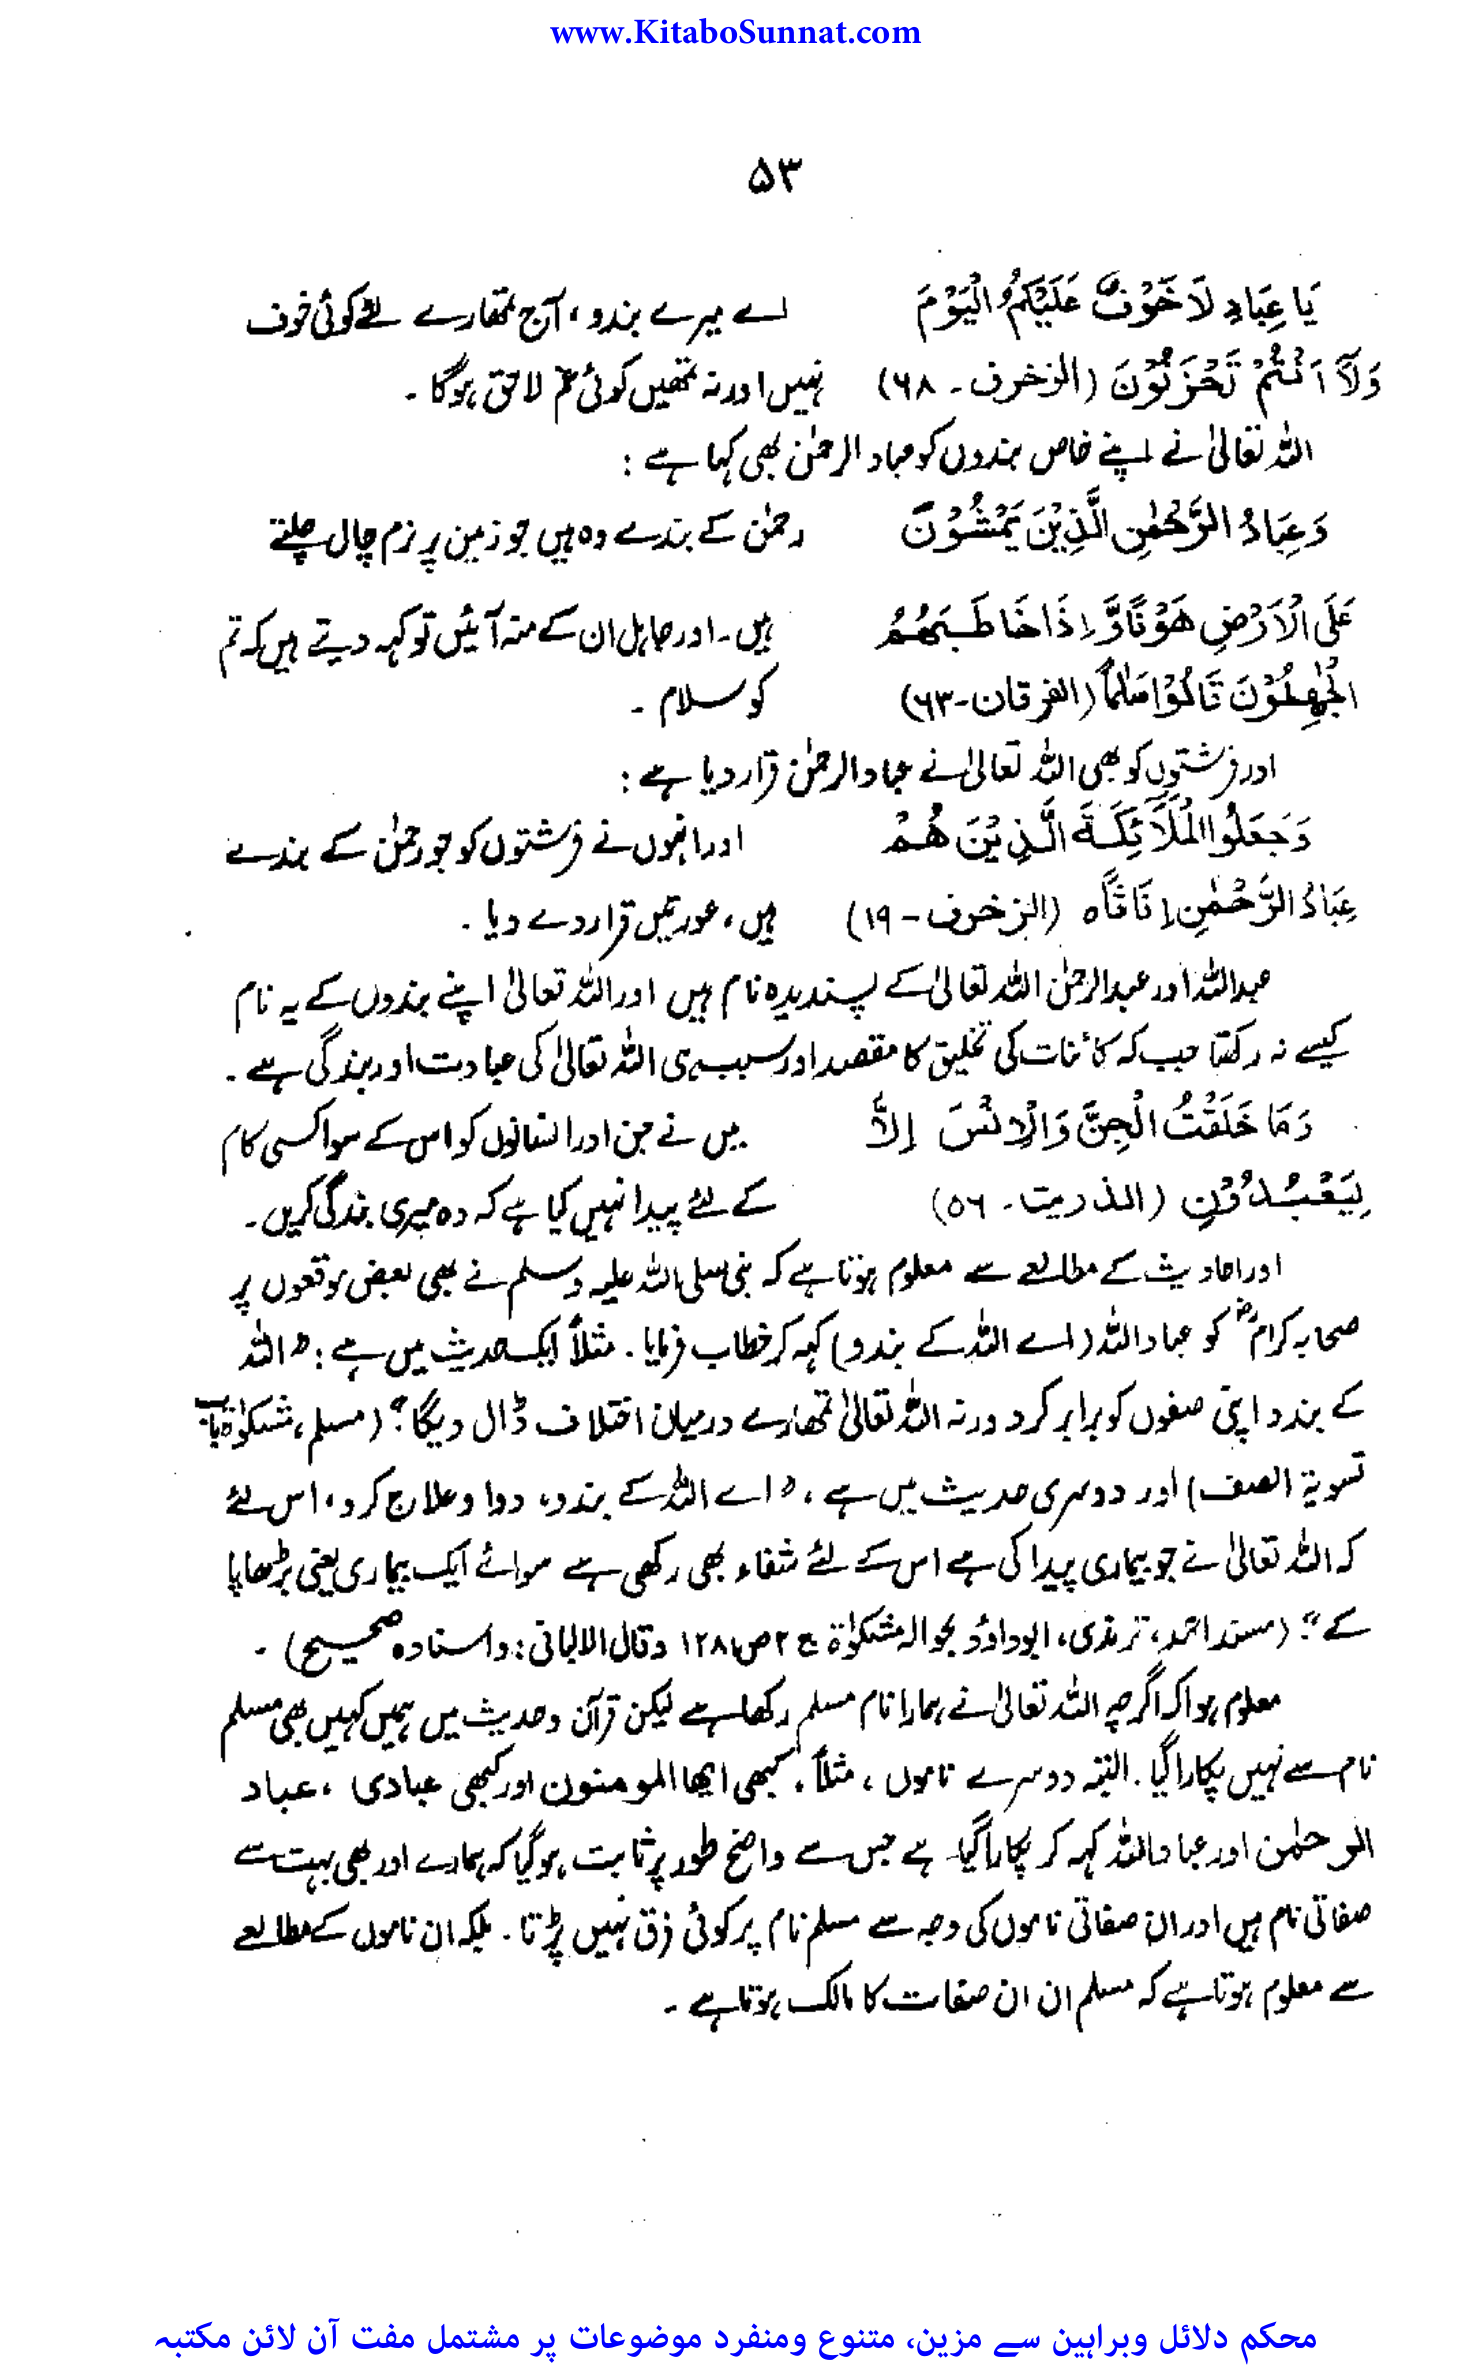 www.KitaboSunnat.com
۵۳
یَا عِبَادِ لَا خَوْفٌ عَلَیْکُمُ الْیَوْمَ اے میرے بندو، آج تمھارے لئے کوئی خوف
وَلَآ اَنْتُمْ تَحْزَنُوْنَ (الزخرف ۔ ۶۸) نہیں اور نہ تمھیں کوئی غم لاحق ہوگا ۔
اللہ تعالیٰ نے اپنے خاص بندوں کو عباد الرحمٰن بھی کہا ہے :
وَعِبَادُ الرَّحْمٰنِ الَّذِیْنَ یَمْشُوْنَ رحمٰن کے بندے وہ ہیں جو زمین پر نرم چال چلتے
عَلَی الْاَرْضِ هَوْنًا وَّاِذَا خَاطَبَهُمُ ہیں۔ اور جاہل ان کے منہ آئیں تو کہہ دیتے ہیں کہ تم
الْجٰهِلُوْنَ قَالُوْا سَلٰمًا (الفرقان-۶۳) کو سلام ۔
اور فرشتوں کو بھی اللہ تعالیٰ نے عباد الرحمٰن قرار دیا ہے :
وَجَعَلُوا الْمَلَآئِکَةَ الَّذِیْنَ هُمْ اور انہوں نے فرشتوں کو جو رحمٰن کے بندے
عِبَادُ الرَّحْمٰنِ اِنَاثًا ہ (الزخرف - ۱۹) ہیں، عورتیں قرار دے دیا ۔
عبداللہ اور عبدالرحمٰن اللہ تعالیٰ کے پسندیدہ نام ہیں اور اللہ تعالیٰ اپنے بندوں کے یہ نام
کیسے نہ رکھتا جب کہ کائنات کی تخلیق کا مقصد اور سبب ہی اللہ تعالیٰ کی عبادت اور بندگی ہے ۔
وَمَا خَلَقْتُ الْجِنَّ وَالْاِنْسَ اِلَّا میں نے جن اور انسانوں کو اس کے سوا کسی کام
لِیَعْبُدُوْنِ (الذریت۔ ۵۶) کے لئے پیدا نہیں کیا ہے کہ وہ میری بندگی کریں۔
اور احادیث کے مطالعے سے معلوم ہوتا ہے کہ نبی صلی اللہ علیہ وسلم نے بھی بعض موقعوں پر
صحابہ کرامؓ کو عباد اللہ (اے اللہ کے بندو) کہہ کر خطاب فرمایا۔ مثلاً ایک حدیث میں ہے : "اللہ
کے بندو اپنی صفوں کو برابر کرو ورنہ اللہ تعالیٰ تمھارے درمیان اختلاف ڈال دیگا" (مسلم، مشکوٰۃ باب
تسویۃ الصف) اور دوسری حدیث میں ہے، "اے اللہ کے بندو، دوا و علاج کرو، اس لئے
کہ اللہ تعالیٰ نے جو بیماری پیدا کی ہے اس کے لئے شفاء بھی رکھی ہے سوائے ایک بیماری یعنی بڑھاپا
کے" (مسند احمد، ترمذی، ابوداؤد بحوالہ مشکوٰۃ ج ۲ ص ۱۲۸۱ وقال الالبانی: واسنادہ صحیح) ۔
معلوم ہوا کہ اگرچہ اللہ تعالیٰ نے ہمارا نام مسلم رکھا ہے لیکن قرآن و حدیث میں ہمیں کہیں بھی مسلم
نام سے نہیں پکارا گیا۔ البتہ دوسرے ناموں، مثلاً، کبھی ایھا المومنون اور کبھی عبادی ، عباد
الرحمٰن اور عباد اللہ کہہ کر پکارا گیا ہے جس سے واضح طور پر ثابت ہو گیا کہ ہمارے اور بھی بہت سے
صفاتی نام ہیں اور ان صفاتی ناموں کی وجہ سے مسلم نام پر کوئی فرق نہیں پڑتا۔ بلکہ ان ناموں کے مطالعے
سے معلوم ہوتا ہے کہ مسلم ان ان صفات کا مالک ہوتا ہے ۔
محکم دلائل وبراہین سے مزین، متنوع ومنفرد موضوعات پر مشتمل مفت آن لائن مکتبہ